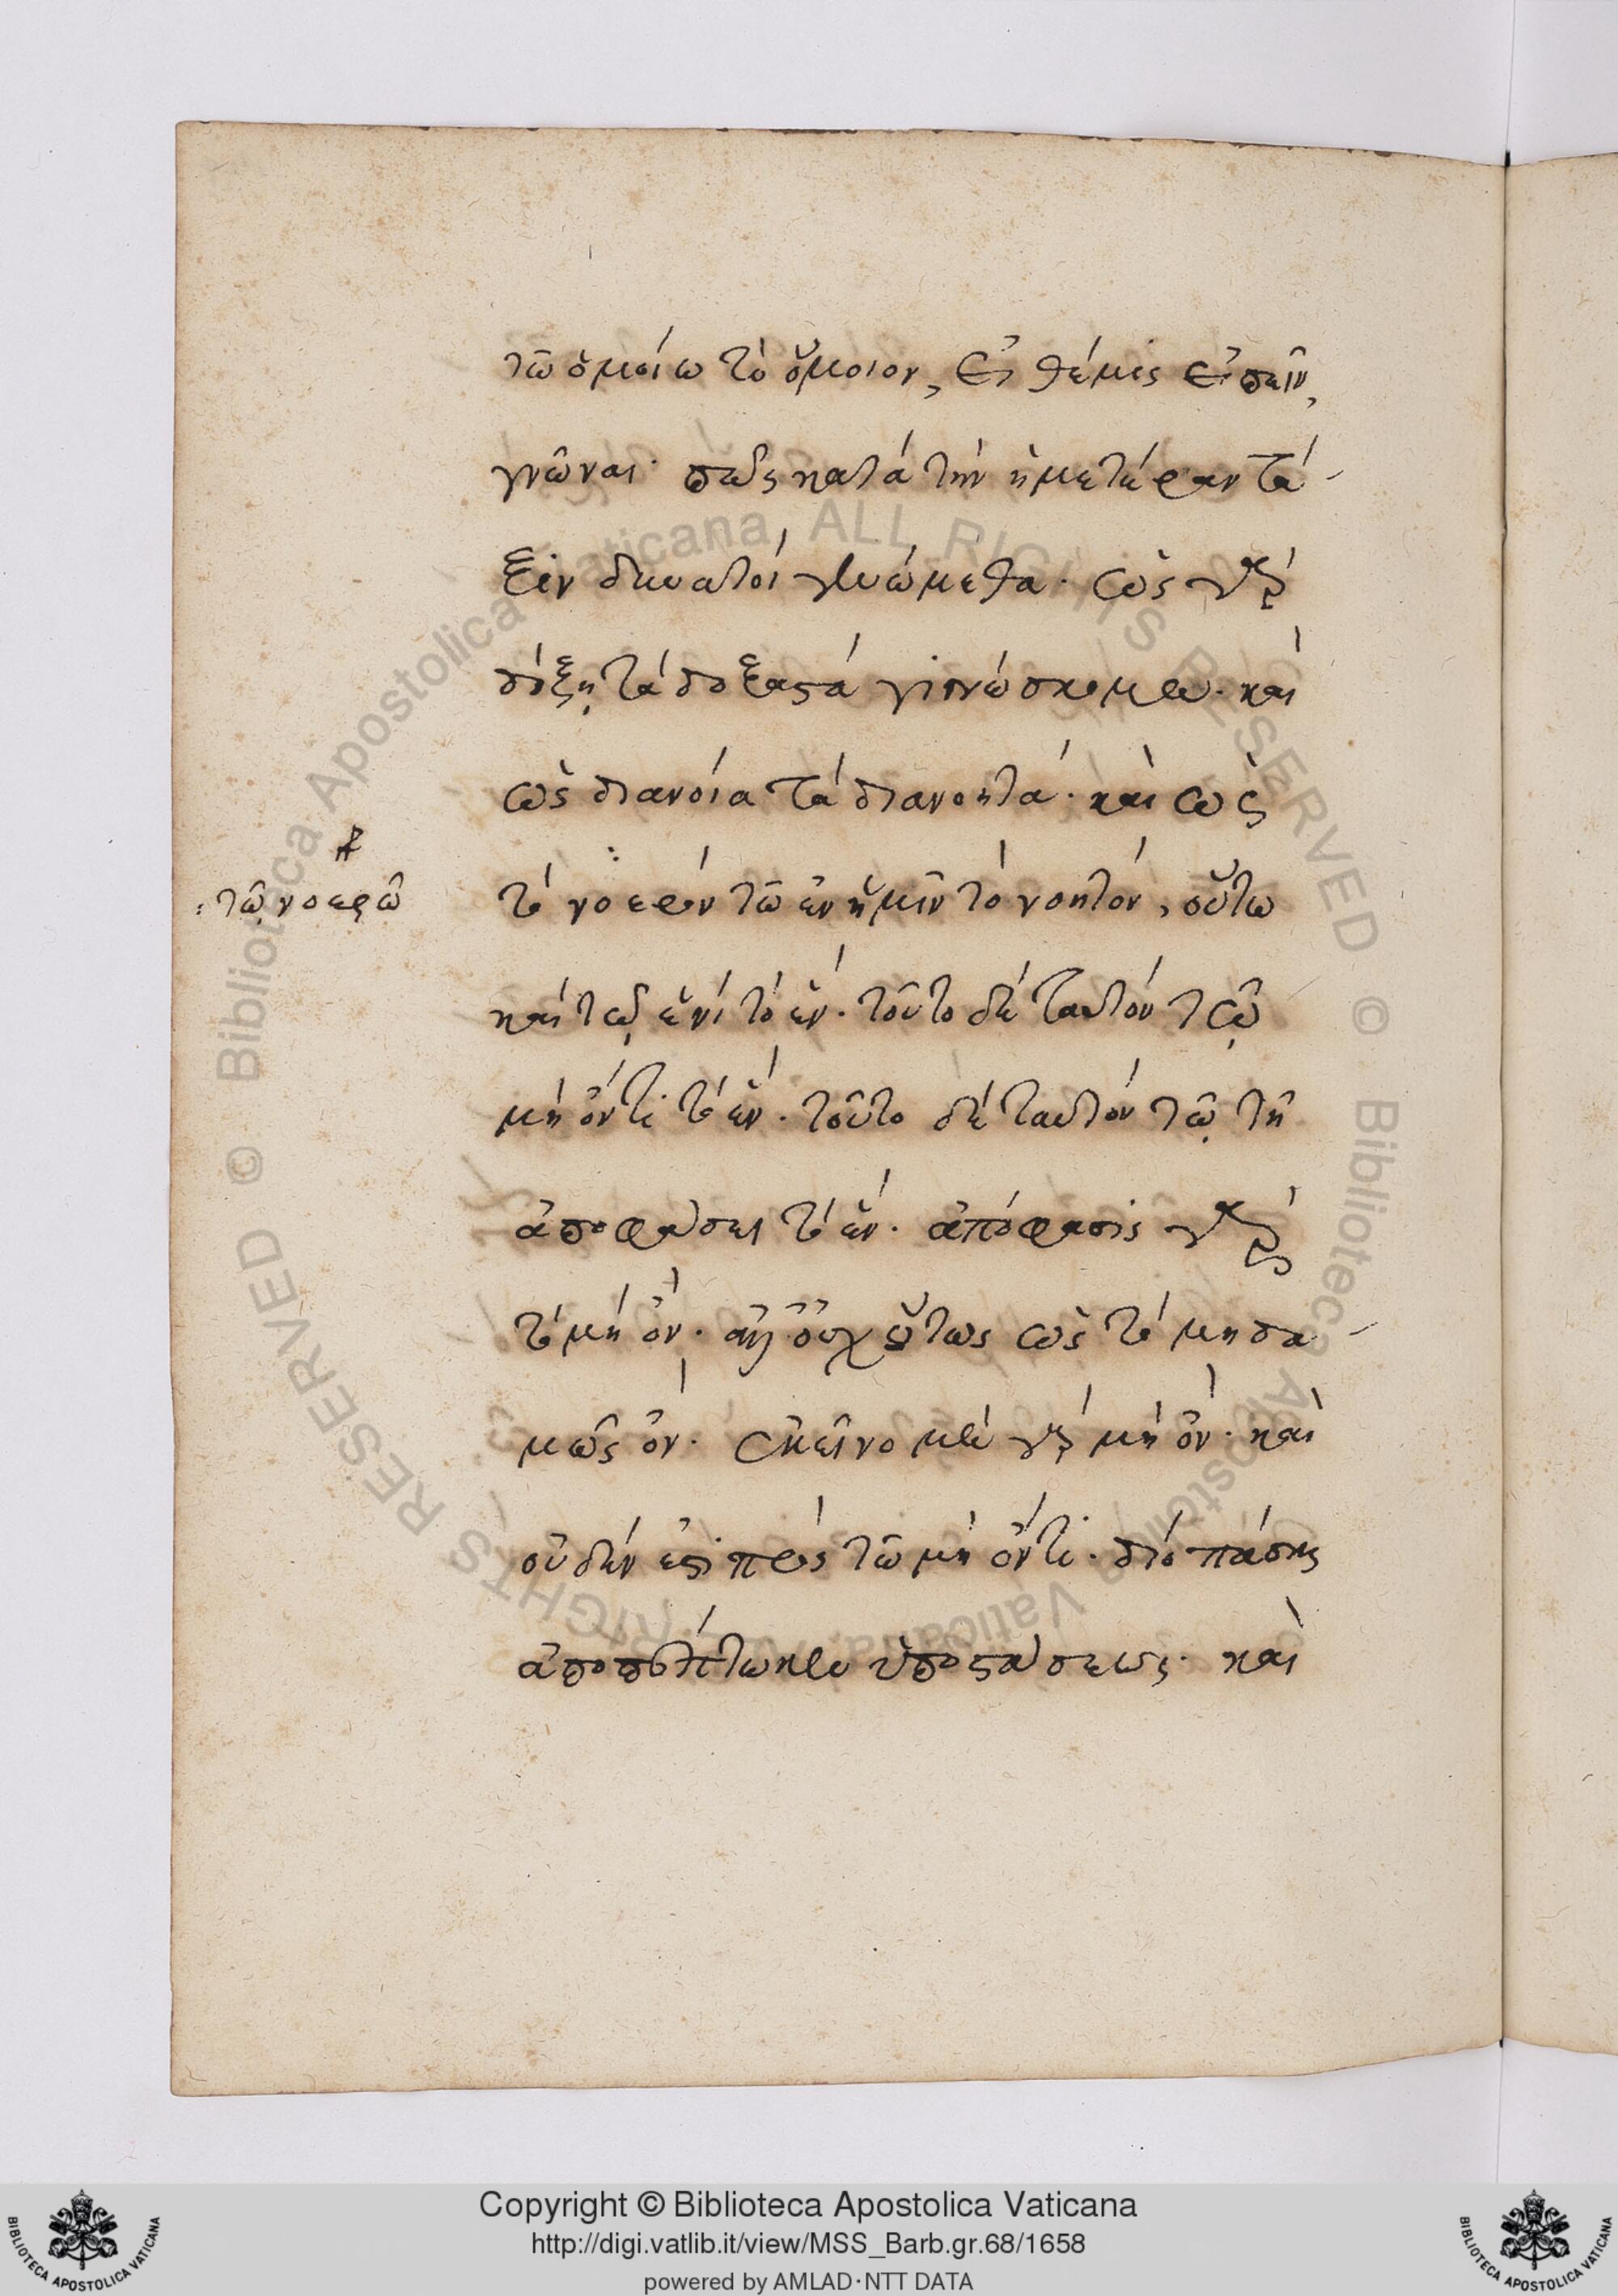 τῶ ὁμοίω τὸ ὅμοιον, εἰ θέμις εἰπεῖν,
γνῶναι· πῶς κατὰ τὴν ἡμετέραν τά-
ξιν δυνατοὶ γενώμεθα. ὡς γὰρ
δόξῃ τὰ δοξαστὰ γινώσκομεν. καὶ
ὡς διανοία τὰ διανοητά. καὶ ὡς
τὸ νοερὸν τῶ ἐν ἡμῖν τὸ νοητόν, οὕτω
: τῶ νοερῶ
καὶ τῷ ἑνὶ τὸ ἕν. τοῦτο δὲ ταυτὸν τῷ
μὴ ὄντι τὸ ἕν. τοῦτο δὲ ταυτὸν τῷ τῆ
ἀποφάσει τὸ ἕν. ἀπόφασις γὰρ
τὸ μὴ ὄν. ἀλλ' οὐχ οὕτως ὡς τὸ μηδα-
μῶς ὄν. ἐκεῖνο μὲν γὰρ μὴ ὄν. καὶ
οὐδέν ἐστι πρὸς τῶ μὴ ὄντι. διὸ πάσης
ἀποπεπτωκεν ὑποστάσεως. καὶ
Copyright © Biblioteca Apostolica Vaticana
http://digi.vatlib.it/view/MSS_Barb.gr.68/1658
powered by AMLAD·NTT DATA
BIBLIOTECA APOSTOLICA VATICANA
BIBLIOTECA APOSTOLICA VATICANA
© Biblioteca Apostolica Vaticana ALL RIGHTS RESERVED
© Biblioteca Apostolica Vaticana ALL RIGHTS RESERVED